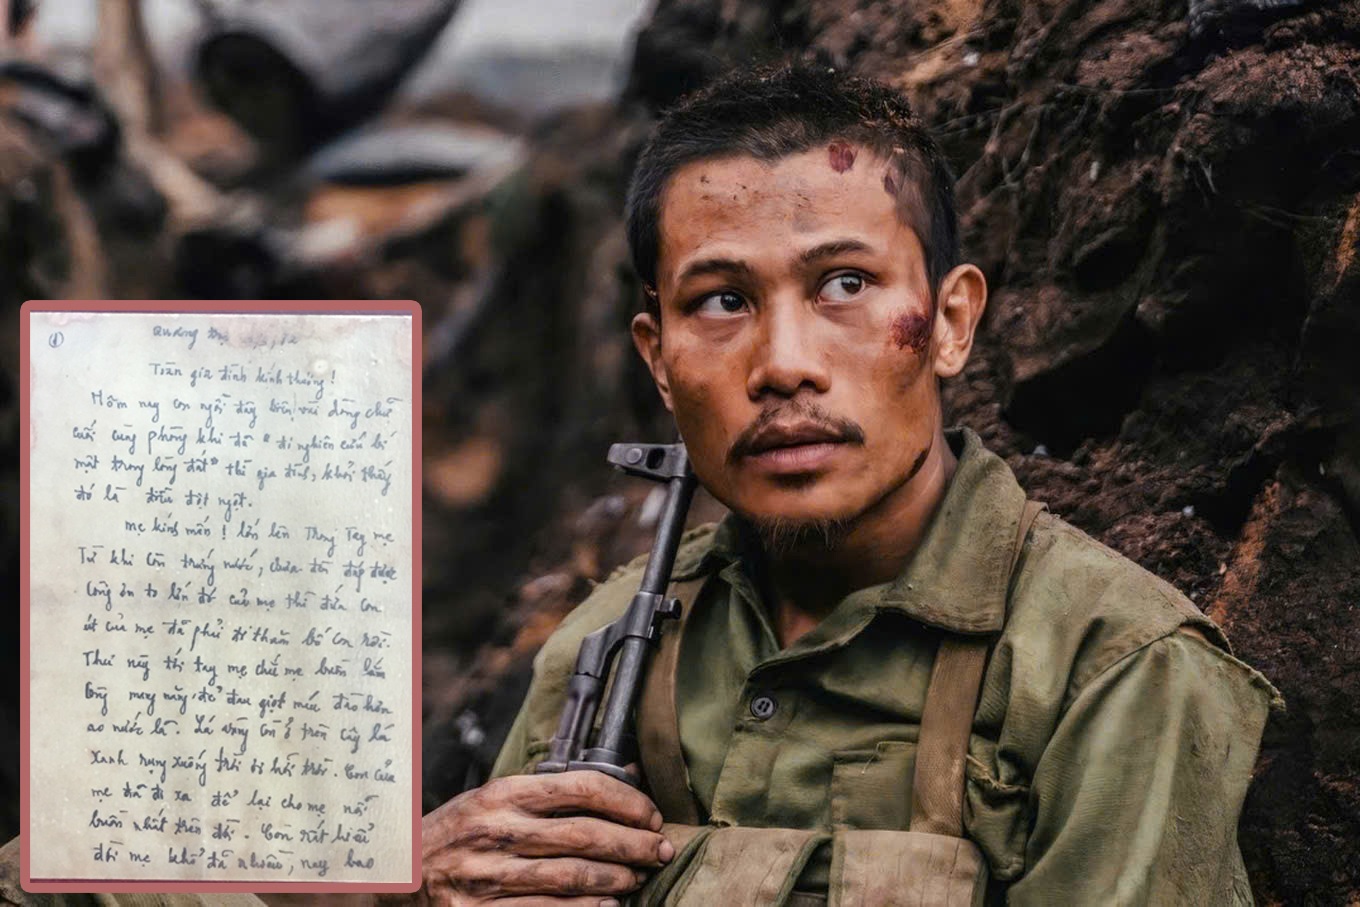 ①
Quảng Trị
Toàn gia đình kính thương!
Hôm nay con ngồi đây vài dòng chữ
cuối cùng phòng khi đã "đi nghiên cứu bí
mật trong lòng đất" thì gia đình, khỏi thấy
đó là điều đột ngột.
Mẹ kính mến! lớn lên Trong Tay mẹ
Từ khi còn trứng nước, chưa đền đáp được
Công ơn to lớn đó của mẹ thì đứa con
út của mẹ đã phải đi thăm bố con rồi.
Thư này tới tay mẹ chắc mẹ buồn lắm
lòng mang nặng đẻ đau giọt máu đào hơn
ao nước lã. Lá vàng còn ở trên cây lá
xanh rụng xuống trời ơi hỡi trời. Con của
mẹ đã đi xa để lại cho mẹ nỗi
buồn nhất trên đời. Con rất hiểu
đời mẹ khổ đã nhiều, nay bao